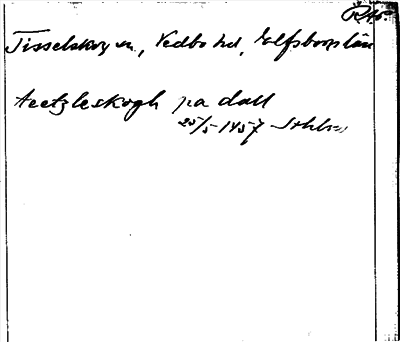 RAp
Tisselskog sn, Vedbo hd, Elfsborgs län
teetzleskogh pa dall
25/5 1457 Sthlm